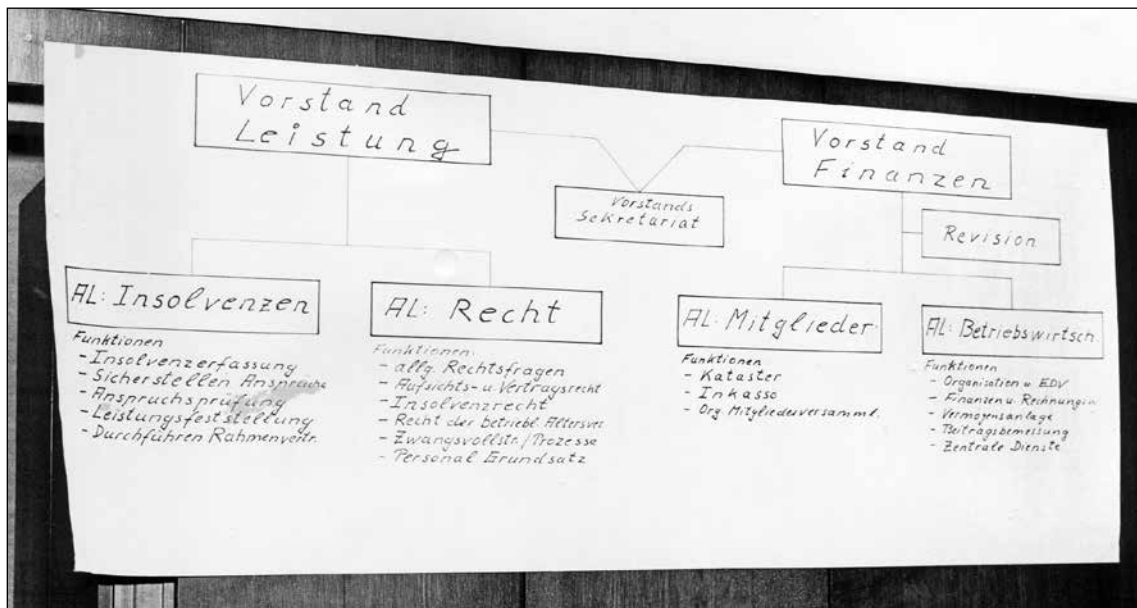 Vorstand
Leistung
Vorstand
Finanzen
Vorstands
Sekretariat
Revision
AL: Insolvenzen
Funktionen
- Insolvenzerfassung
- Sicherstellen Ansprüche
- Anspruchsprüfung
- Leistungsfeststellung
- Durchführen Rahmenvertr.
AL: Recht
Funktionen:
- allg. Rechtsfragen
- Aufsichts- u. Vertragsrecht
- Insolvenzrecht
- Recht der betriebl. Altersver.
- Zwangsvollstr. / Prozesse
- Personal Grundsatz
AL: Mitglieder
Funktionen
- Kataster
- Inkasso
- Org. Mitgliederversamml.
AL: Betriebswirtsch.
Funktionen:
- Organisation u. EDV
- Finanzen u.
- Vermögensanlage
- Beitragsbemessung
- Zentrale Dienste